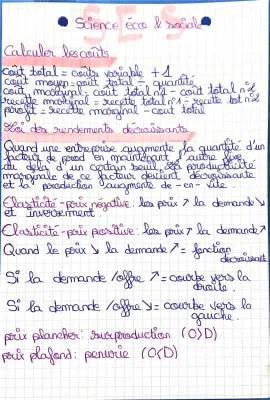 SES
Science éco & sociale
Calculer les coûts
coût total = coûts variable + 1
coût moyen = coût total - quantité
coût marginal = coût total n°1 - coût total n°2
recette marginal = recette total n°1 - recette tot n°2
profit = recette marginal - coût total
Loi des rendements décroissants
Quand une entreprise augmente la quantité d'un
facteur de prod en maintenant l'autre fixe,
au delà d'un certain seuil, la productivité
marginale de ce facteur devient décroissante
et la production augmente de - en - vite.
Elasticité-prix négative: les prix ↗ la demande ↘
et inversement.
Elasticité-prix positive: les prix ↗ la demande ↗
Quand le prix ↘ la demande ↗ = fonction
décroissante
Si la demande /offre ↗ = courbe vers la
droite.
Si la demande /offre ↘ = courbe vers la
gauche.
prix plancher: surproduction (O>D)
prix plafond: penurie (O<D)